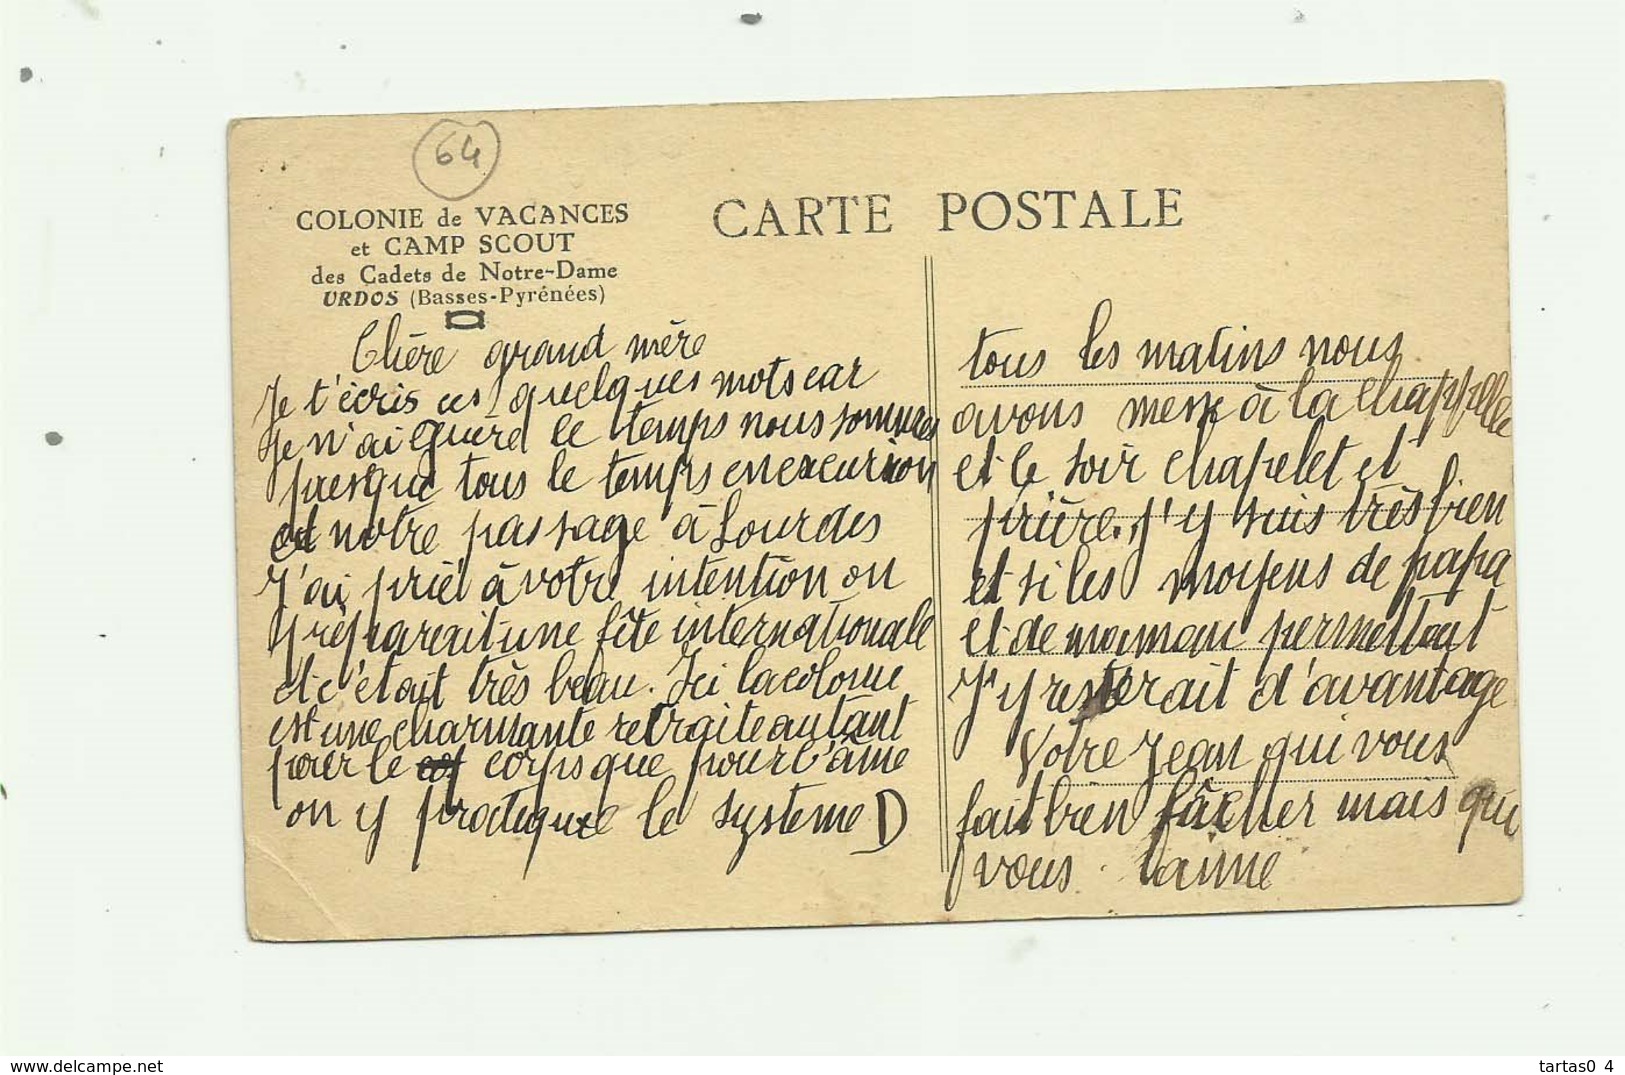 64
COLONIE de VACANCES
et CAMP SCOUT
des Cadets de Notre-Dame
URDOS (Basses-Pyrénées)
CARTE POSTALE
Chère grand mère
Je t'écris ces quelques mots car
Je n'ai guère le temps nous sommes
presque tous le temps en excursion
et notre passage à Lourdes
J'ai prié à votre intention on
préparait une fête internationale
et c'était très beau. Ici la colonie
est une charmante retraite autant
pour le corps que pour l'âme
on y pratique le systeme D
tous les matins nous
avons messe à la chappelle
et le soir chapelet et
prière. J'y suis très bien
et si les moyens de papa
et de maman permettait
J'y resterait d'avantage
Votre Jean qui vous
fait bien fâcher mais qui
vous aime
tartas0 4